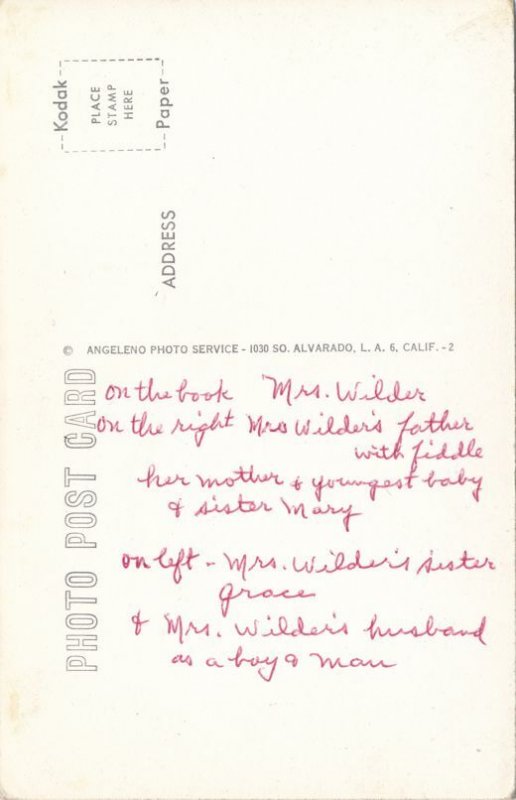 Kodak
PLACE
STAMP
HERE
Paper
ADDRESS
© ANGELENO PHOTO SERVICE - 1030 SO. ALVARADO, L. A. 6, CALIF. - 2
PHOTO POST CARD
on the book Mrs. Wilder
on the right Mrs Wilder's father
with fiddle
her mother & youngest baby
& sister Mary
on left - Mrs. Wilder's sister
Grace
& Mrs. Wilder's husband
as a boy & man